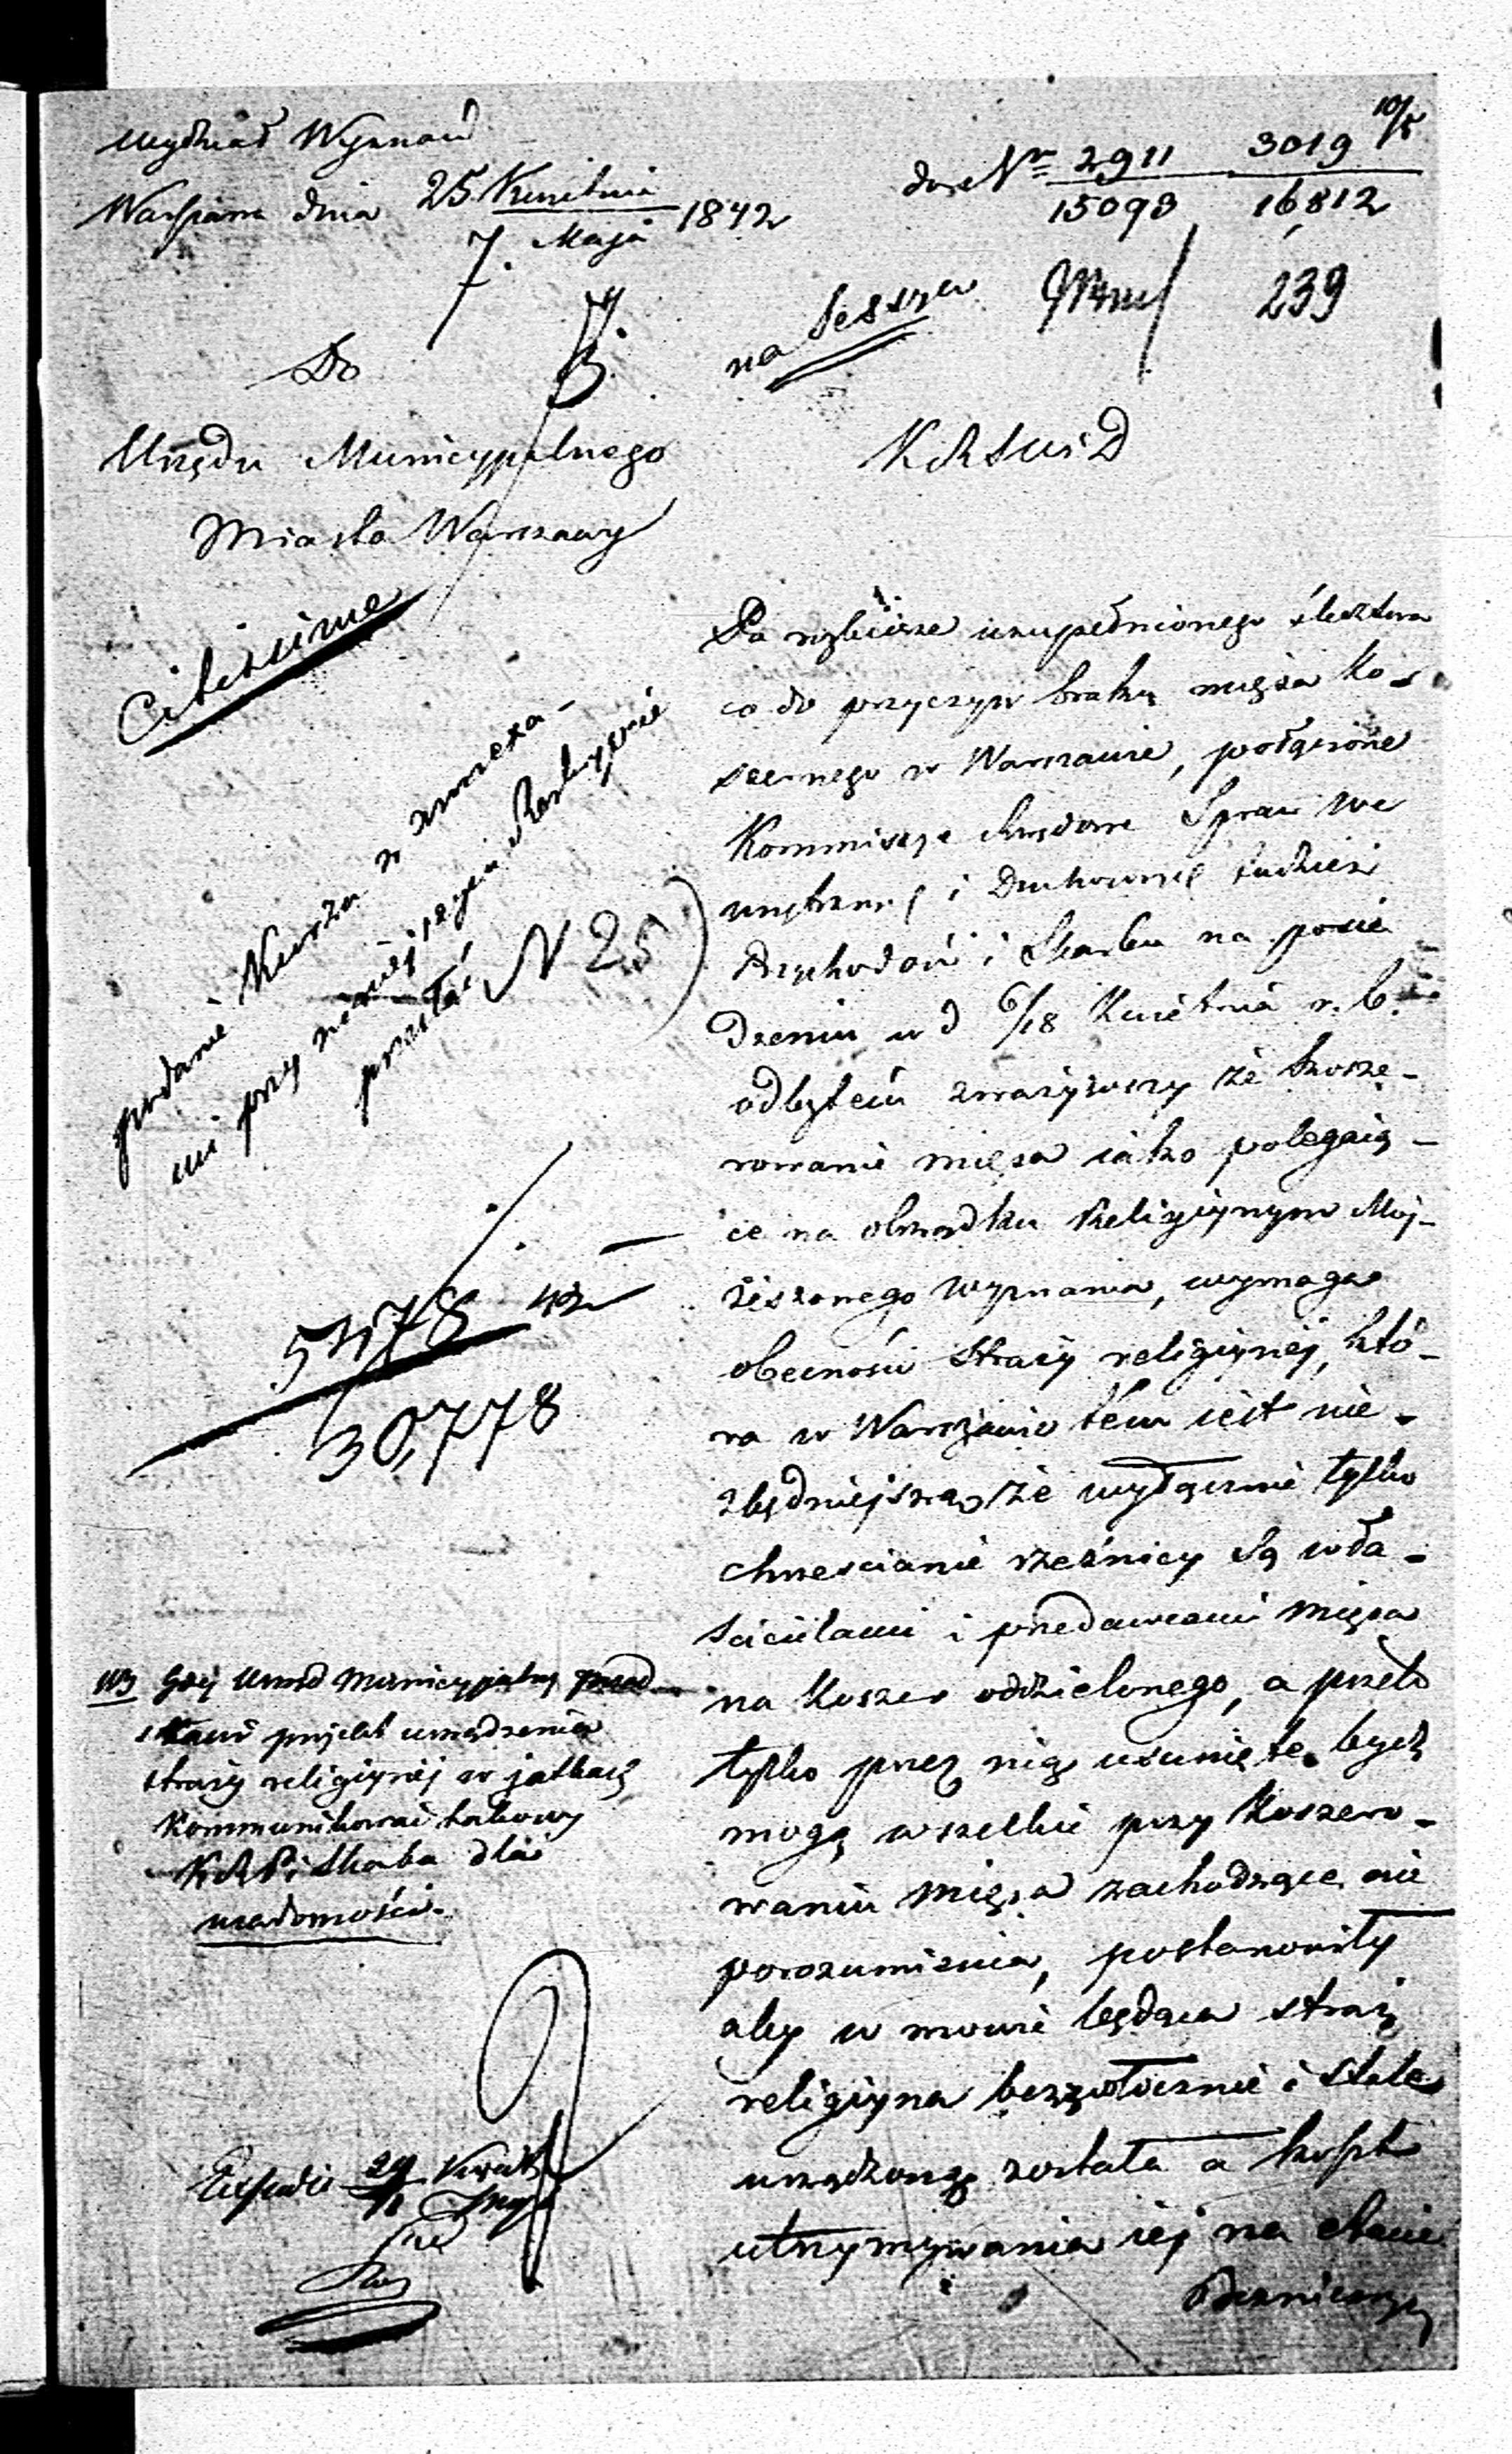 Wydział Wyznań
Warszawa dnia 25 Kwietnia / 7. Maja 1842
do Nr 2911 / 15093 3019 / 16,812
10/5
239
na Sessya
Do
Urzędu Municypalnego
Miasta Warszawy
KRSWiD
Citissime
podanie Kurza w annexa-
mi przy niniejszym
przesłać N 25)
5478 42
30,778
Po rozbiorze uzupełnionego śledztwa
co do przyczyn braku mięsa ko-
szernego w Warszawie, połączone
Kommissye Rządowe Spraw We
wnętrzny i Duchownych tudzież
Przychodów i Skarbu na posie
dzeniu w d 6/18 Kwietnia r. b.
odbytem zważywszy że kosze-
rowanie mięsa iako polegaią-
ce na obrządku Religiynym Moj-
żeszowego wyznania, wymaga
obecności Straży religiynéj, któ-
ra w Warszawie tém iest nie-
zbędniejszą, że wyłącznie tylko
chrześcianie rzeźnicy są wła-
ścicielami i przedawcami mięsa
na koszer oddzielonego, a przeto
tylko przez nią usunięte bydź
mogą wszelkie przy koszero-
waniu mięsa zachodzące nie
porozumienia, postanowiły
aby w mowie będąca straż
religiyna bezzwłocznie i stale
urządzoną została a koszt
utrzymywania iéj na
NB Gdy Urząd Municypalny przed
stawi projekt urządzenia
straży religiynéj w jatkach
Kommunikować takowy
KRP i Skarbu dla
wiadomości.
Expedi 29 Kwiet / 11 Maja